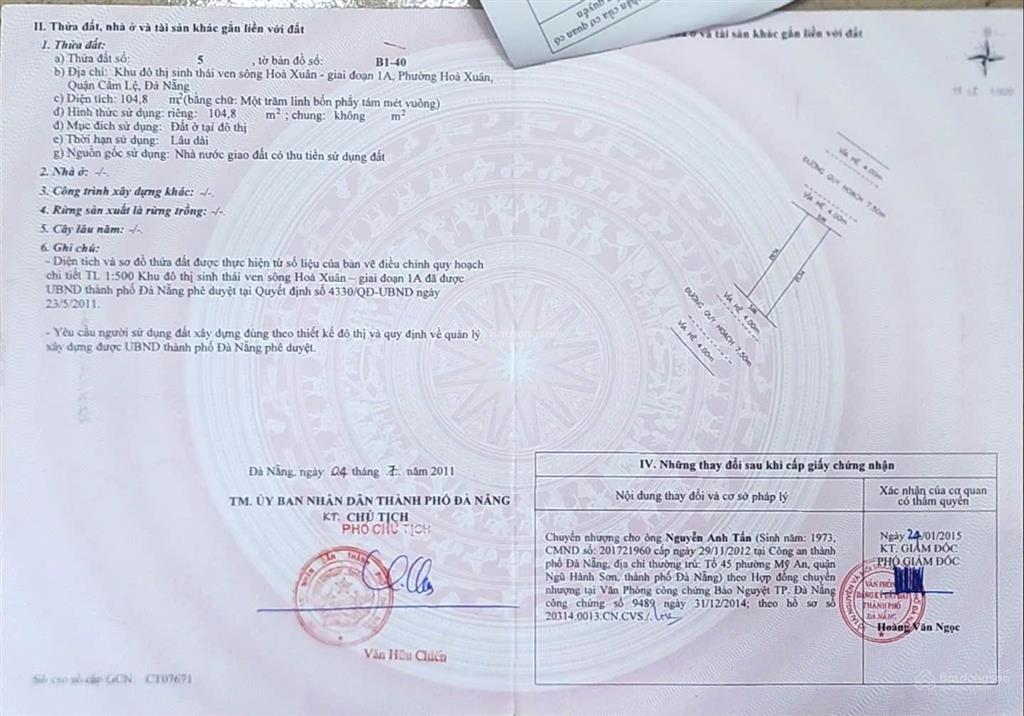 II. Thửa đất, nhà ở và tài sản khác gắn liền với đất
1. Thửa đất:
a) Thửa đất số: 5 , tờ bản đồ số: B1-40
b) Địa chỉ: Khu đô thị sinh thái ven sông Hoà Xuân - giai đoạn 1A, Phường Hoà Xuân,
Quận Cẩm Lệ, Đà Nẵng
c) Diện tích: 104,8 m²(bằng chữ: Một trăm linh bốn phẩy tám mét vuông)
d) Hình thức sử dụng: riêng: 104,8 m² ; chung: không m²
đ) Mục đích sử dụng: Đất ở tại đô thị
e) Thời hạn sử dụng: Lâu dài
g) Nguồn gốc sử dụng: Nhà nước giao đất có thu tiền sử dụng đất
2. Nhà ở: -/-.
3. Công trình xây dựng khác: -/-.
4. Rừng sản xuất là rừng trồng: -/-.
5. Cây lâu năm: -/-.
6. Ghi chú:
- Diện tích và sơ đồ thửa đất được thực hiện từ số liệu của bản vẽ điều chỉnh quy hoạch
chi tiết TL 1:500 Khu đô thị sinh thái ven sông Hoà Xuân – giai đoạn 1A đã được
UBND thành phố Đà Nẵng phê duyệt tại Quyết định số 4330/QĐ-UBND ngày
23/5/2011.
- Yêu cầu người sử dụng đất xây dựng đúng theo thiết kế đô thị và quy định về quản lý
xây dựng được UBND thành phố Đà Nẵng phê duyệt.
Đà Nẵng, ngày 04 tháng 7 năm 2011
TM. ỦY BAN NHÂN DÂN THÀNH PHỐ ĐÀ NẴNG
KT. CHỦ TỊCH
PHÓ CHỦ TỊCH
Văn Hữu Chiến
Số vào sổ cấp GCN: CT07671
của cơ quan có
ở và tài sản khác gắn liền với đất
VỈA HÈ 4.00m
ĐƯỜNG QUY HOẠCH 7,50m
VỈA HÈ 4.00m
VỈA HÈ 4.00m
ĐƯỜNG QUY HOẠCH 7,50m
VỈA HÈ 4.00m
IV. Những thay đổi sau khi cấp giấy chứng nhận
Nội dung thay đổi và cơ sở pháp lý
Xác nhận của cơ quan
có thẩm quyền
Chuyển nhượng cho ông Nguyễn Anh Tấn (Sinh năm: 1973,
CMND số: 201721960 cấp ngày 29/11/2012 tại Công an thành
phố Đà Nẵng, địa chỉ thường trú: Tổ 45 phường Mỹ An, quận
Ngũ Hành Sơn, thành phố Đà Nẵng) theo Hợp đồng chuyển
nhượng tại Văn Phòng công chứng Bảo Nguyệt TP. Đà Nẵng
công chứng số 9489 ngày 31/12/2014; theo hồ sơ số
20314.0013.CN.CVS./.
Ngày 24/01/2015
KT. GIÁM ĐỐC
PHÓ GIÁM ĐỐC
VĂN PHÒNG
ĐĂNG KÝ ĐẤT ĐAI
THÀNH PHỐ
ĐÀ NẴNG
Hoàng Văn Ngọc
Batdongsan